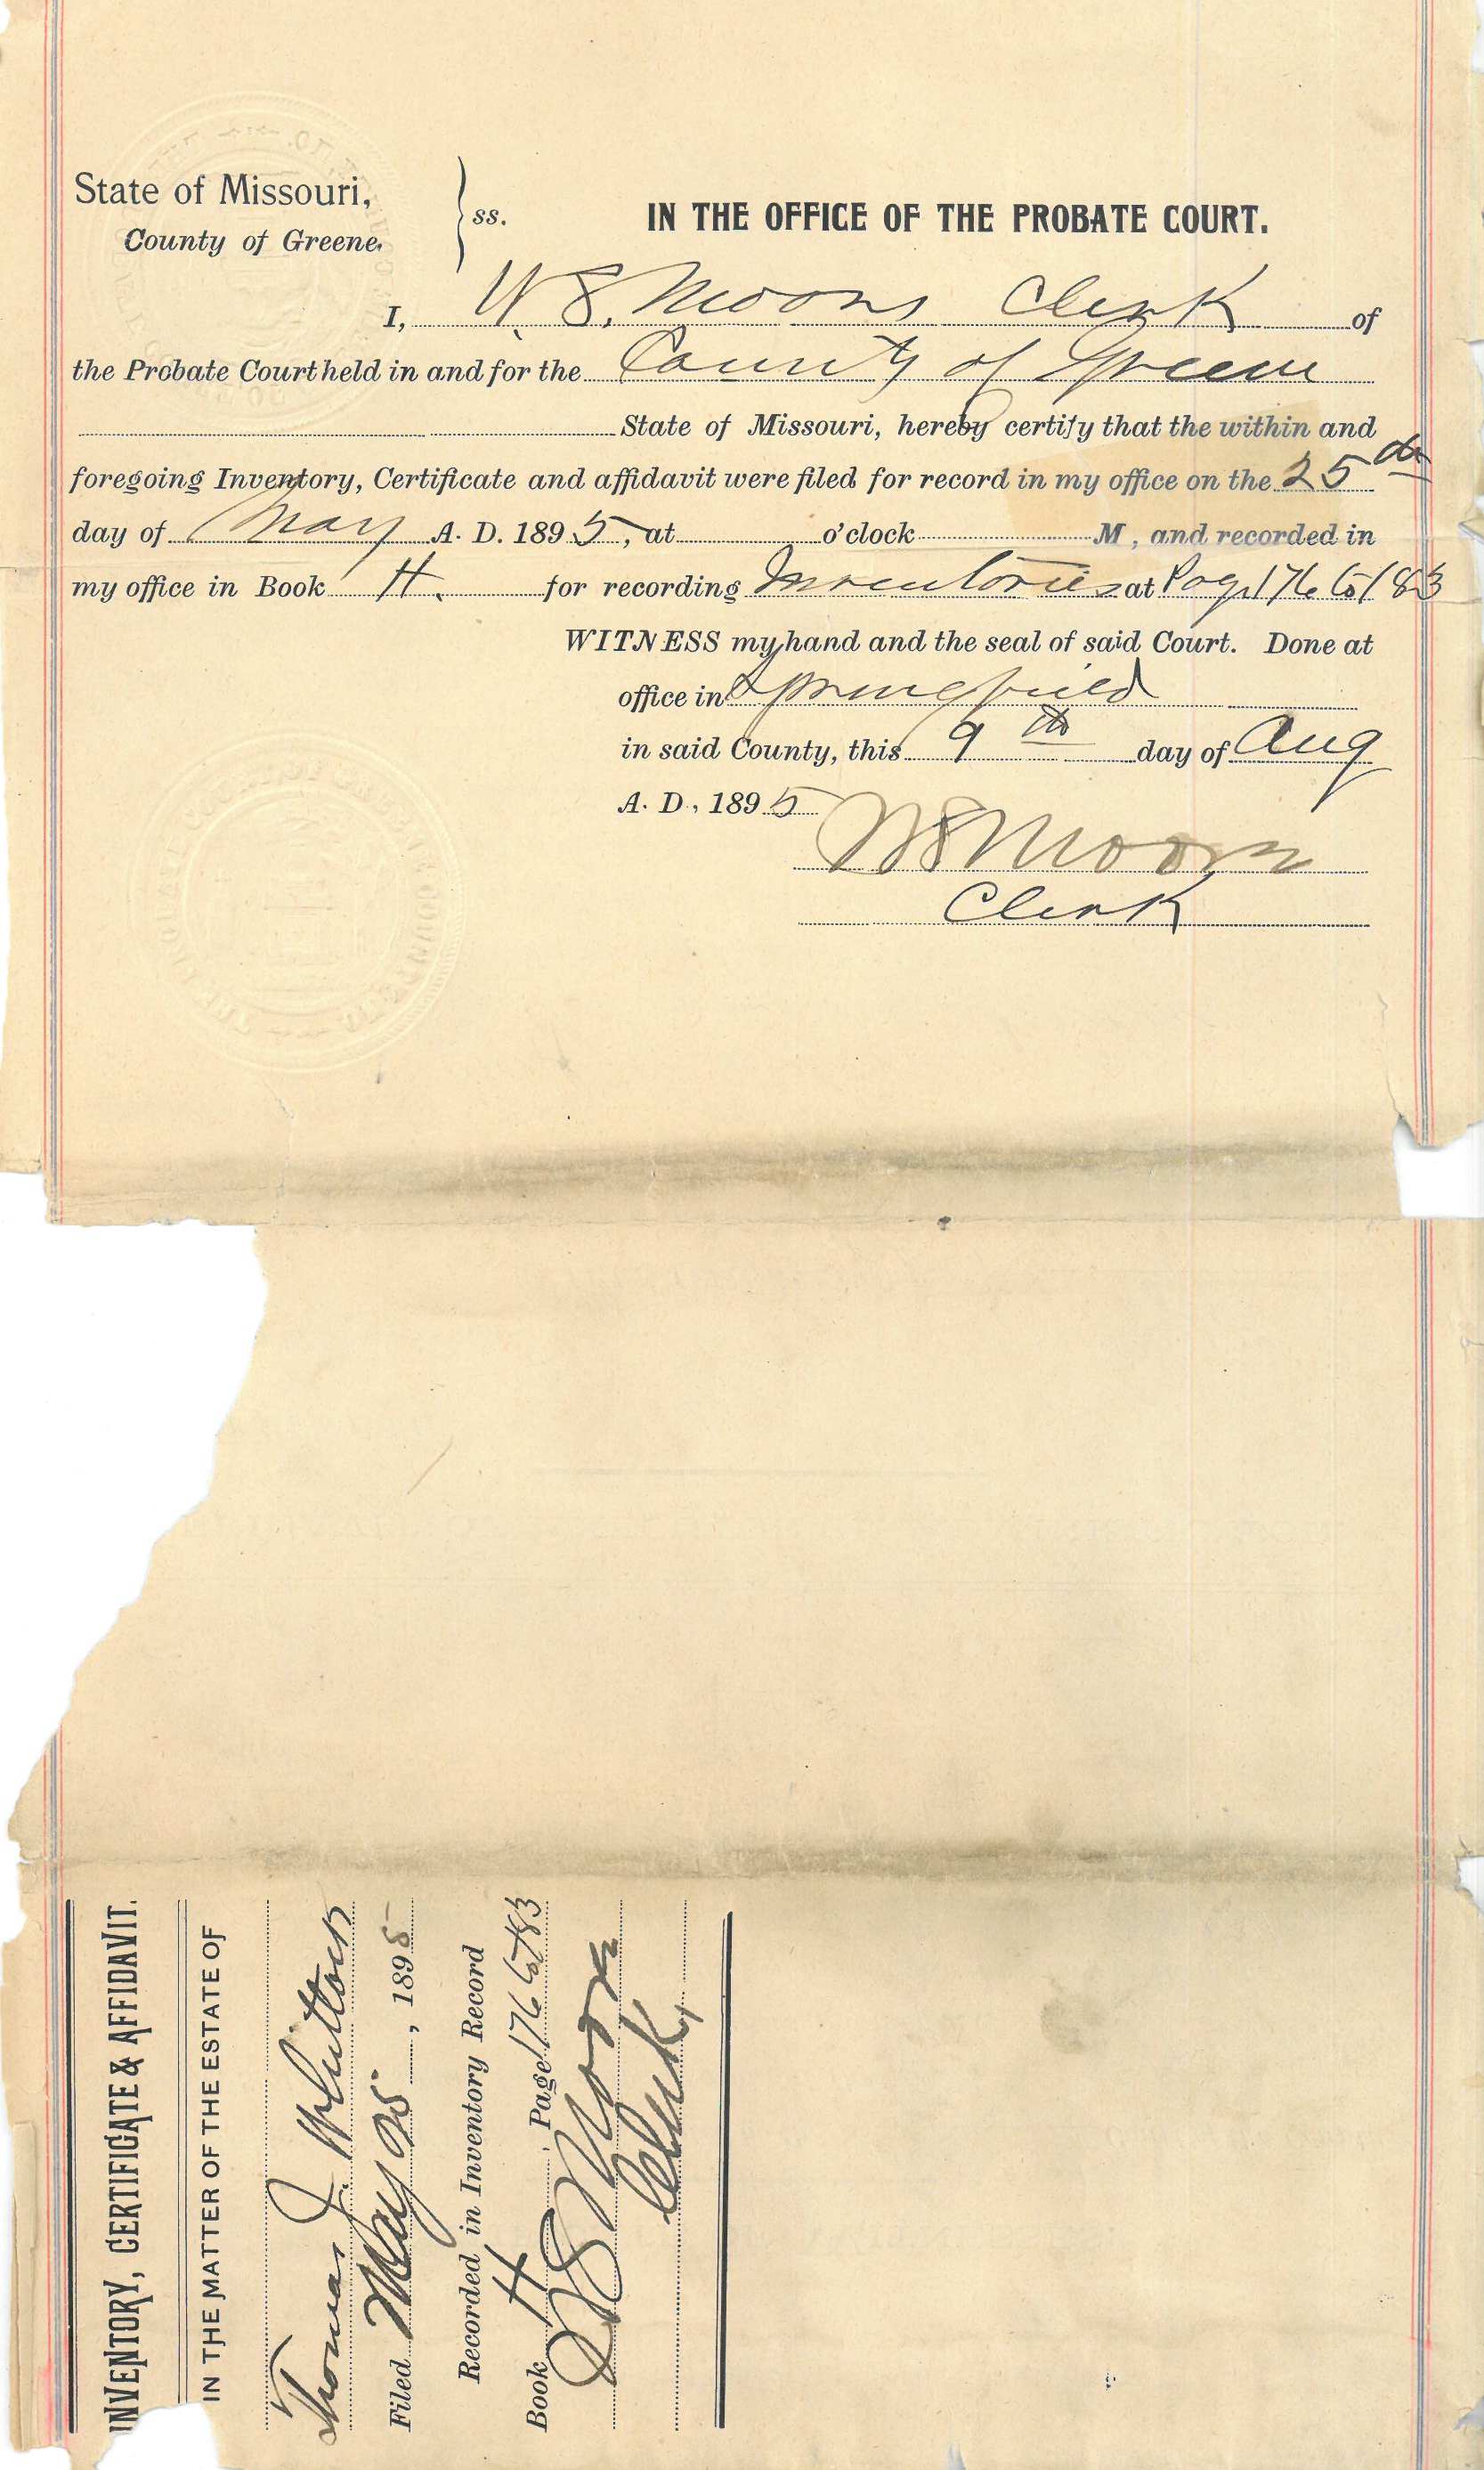 State of Missouri,
County of Greene.
ss.
IN THE OFFICE OF THE PROBATE COURT.
I, W. S. Moore Clerk of
the Probate Court held in and for the County of Greene
State of Missouri, hereby certify that the within and
foregoing Inventory, Certificate and affidavit were filed for record in my office on the 25th
day of May A. D. 1895, at o'clock M, and recorded in
my office in Book H. for recording Inventories at Page 176 to 183
WITNESS my hand and the seal of said Court. Done at
office in Springfield
in said County, this 9th day of Aug
A. D., 1895
W S Moore
Clerk
INVENTORY, CERTIFICATE & AFFIDAVIT.
IN THE MATTER OF THE ESTATE OF
Thomas J. Whitlock
Filed May 25, 1895
Recorded in Inventory Record
Book H Page 176 to 183
W S Moore
Clerk